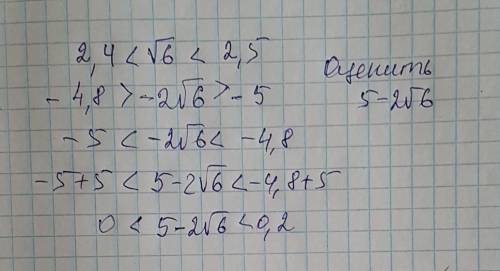 2,4 < √6 < 2,5
Оценить
5-2√6
-4,8 > -2√6 > -5
-5 < -2√6 < -4,8
-5+5 < 5-2√6 < -4,8+5
0 < 5-2√6 < 0,2